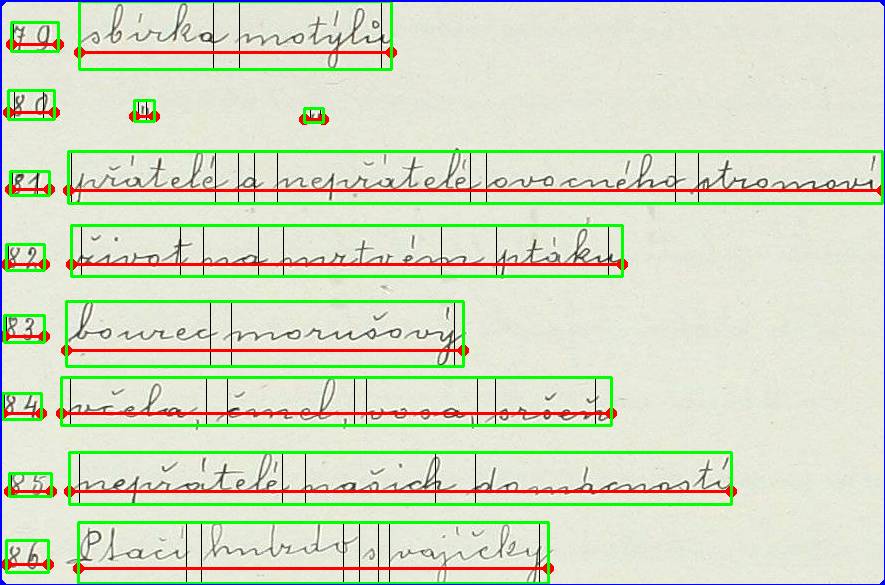 79 sbírka motýlů
80 " "
81 přátelé a nepřátelé ovocného stromoví
82 život na mrtvém ptáku
83 bourec morušový
84 včela, čmel, vosa, sršeň
85 nepřátelé našich domácností
86 Ptačí hnízdo s vajíčky